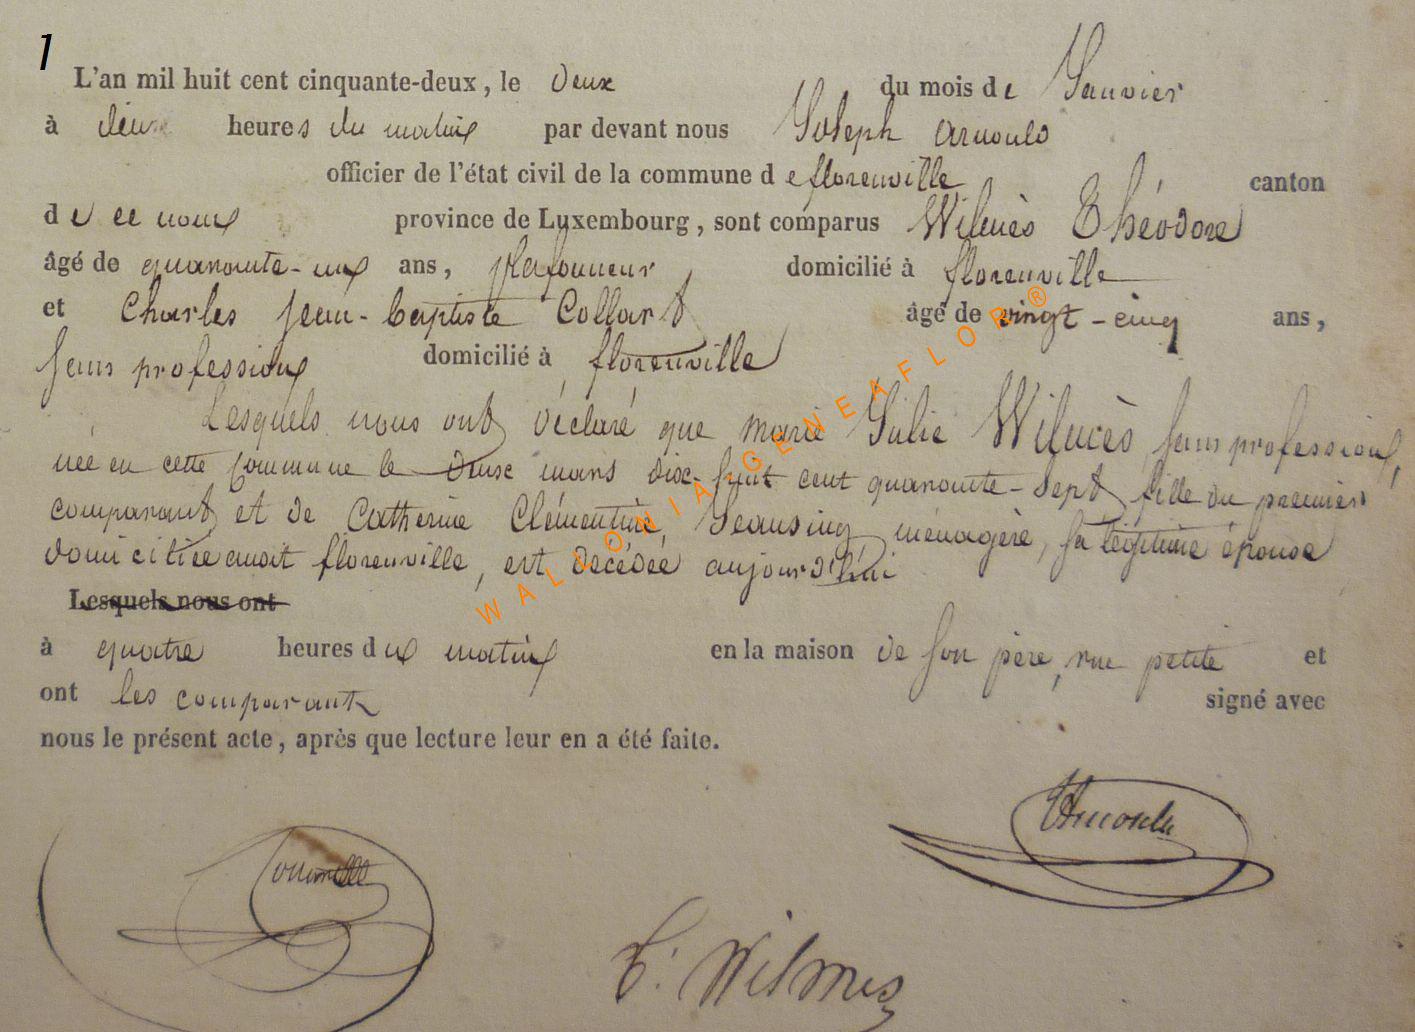 1
L'an mil huit cent cinquante-deux, le deux du mois de Janvier
à heures du matin par devant nous Joseph Arnould
officier de l'état civil de la commune de florenville canton
de ce nom province de Luxembourg, sont comparus Wilmès Théodore
âgé de quarante-un ans, plafonneur domicilié à florenville
et Charles Jean-Baptiste Collart âgé de vingt-cinq ans,
sans profession domicilié à florenville
Lesquels nous ont déclaré que Marie Julie Wilmès, sans profession,
née en cette commune le mars dix-huit cent quarante-sept, fille du premier
comparant et de Catherine Clémentine ménagère, sa légitime épouse
domiciliée audit florenville, est décédée aujourd'hui
Lesquels nous ont
à quatre heures du matin en la maison de son père, rue petite et
ont les comparants signé avec
nous le présent acte, après que lecture leur en a été faite.
Arnould
T. Wilmes
WALLONIA-GENEAFLOR ®